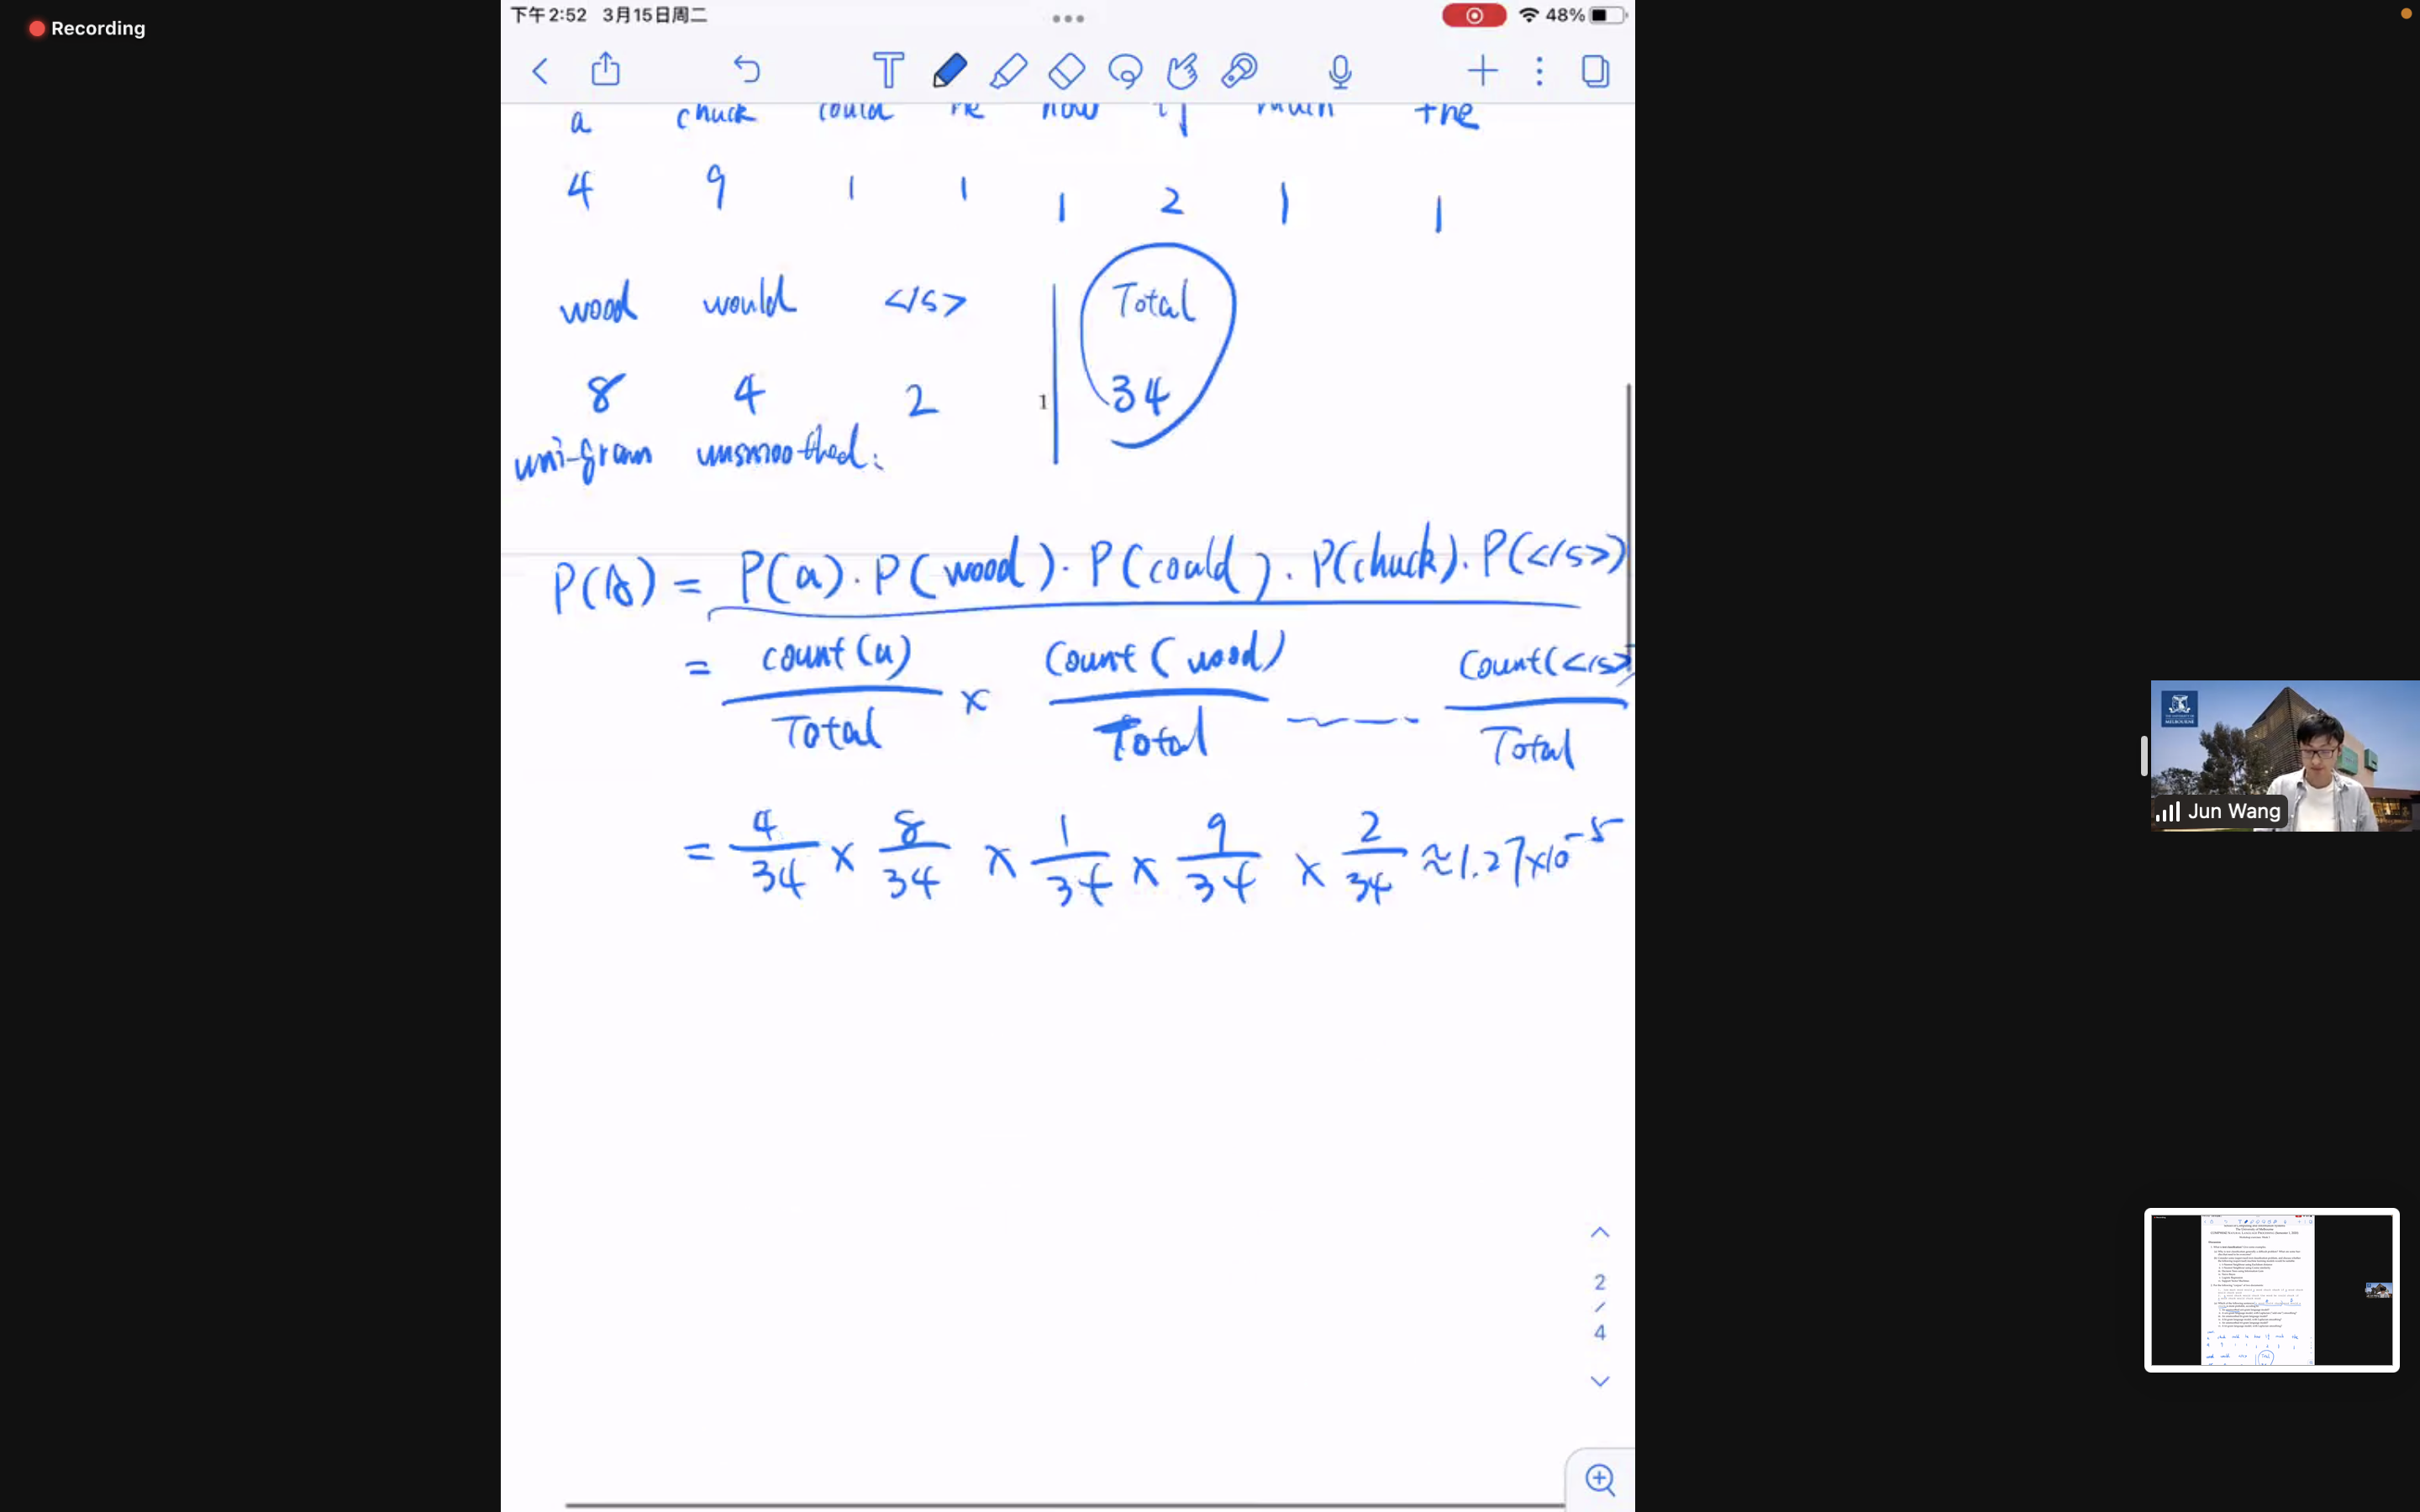 Recording
下午2:52 3月15日周二
48%
a chuck could he how if much the
4 9 1 1 1 2 1 1
wood would </s> Total
8 4 2 1 34
uni-gram unsmoothed:
P(A) = P(a) · P(wood) · P(could) · P(chuck) · P(</s>)
= count(a) / Total × Count(wood) / Total ---- Count(</s>) / Total
= 4/34 × 8/34 × 1/34 × 9/34 × 2/34 ≈ 1.27×10^-5
THE UNIVERSITY OF MELBOURNE
Jun Wang
2
/
4